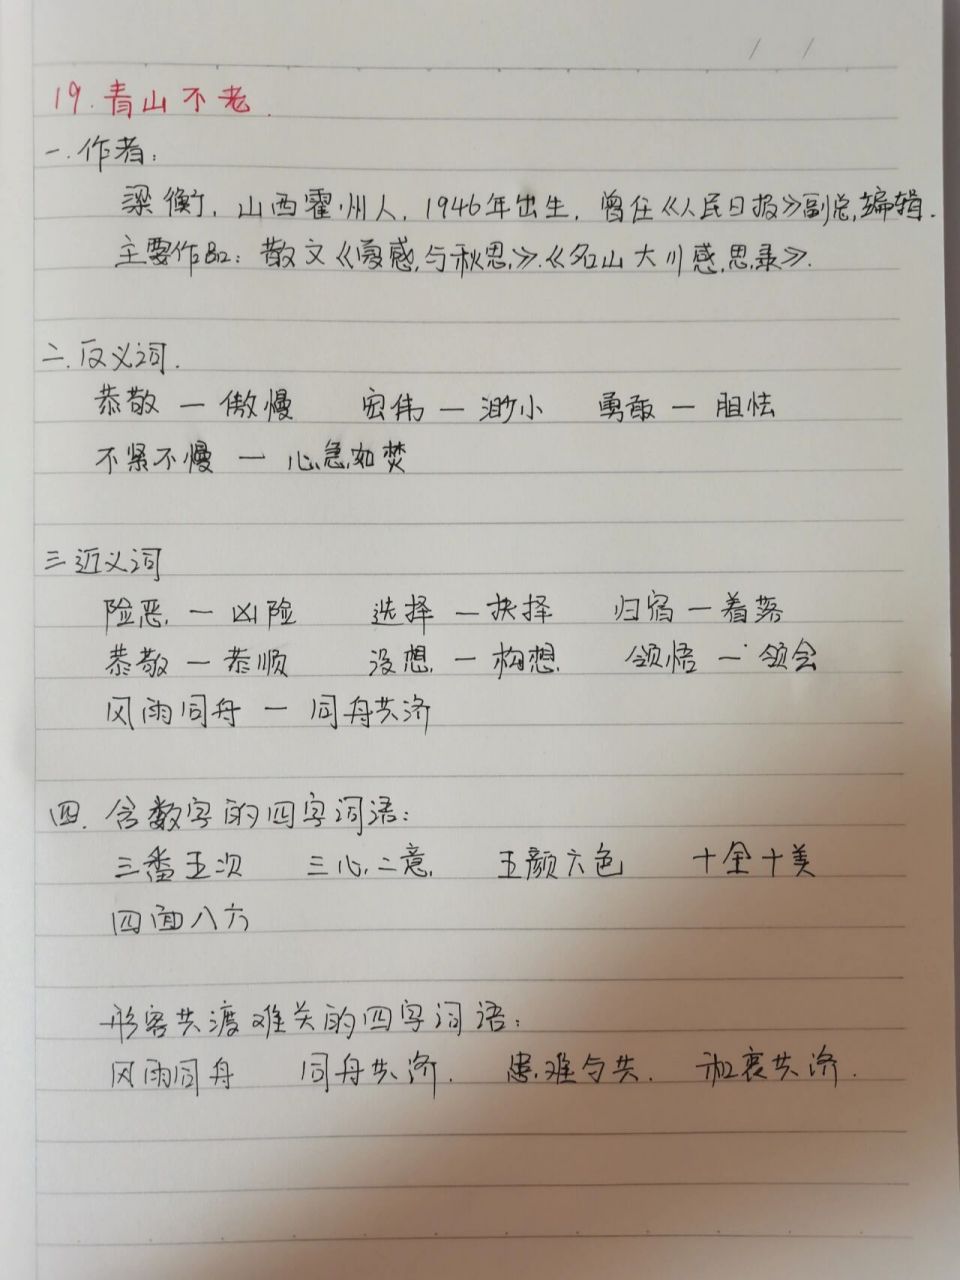 19.青山不老.
一.作者:
梁衡,山西霍州人,1946年出生,曾任《人民日报》副总编辑.
主要作品:散文《夏感与秋思》.《名山大川感思录》.
二.反义词.
恭敬—傲慢 宏伟—渺小 勇敢—胆怯
不紧不慢—心急如焚
三近义词
险恶—凶险 选择—抉择 归宿—着落
恭敬—恭顺 设想—构想 领悟—领会
风雨同舟—同舟共济
四.含数字的四字词语:
三番五次 三心二意 五颜六色 十全十美
四面八方
形容共渡难关的四字词语:
风雨同舟 同舟共济. 患难与共. 和衷共济.